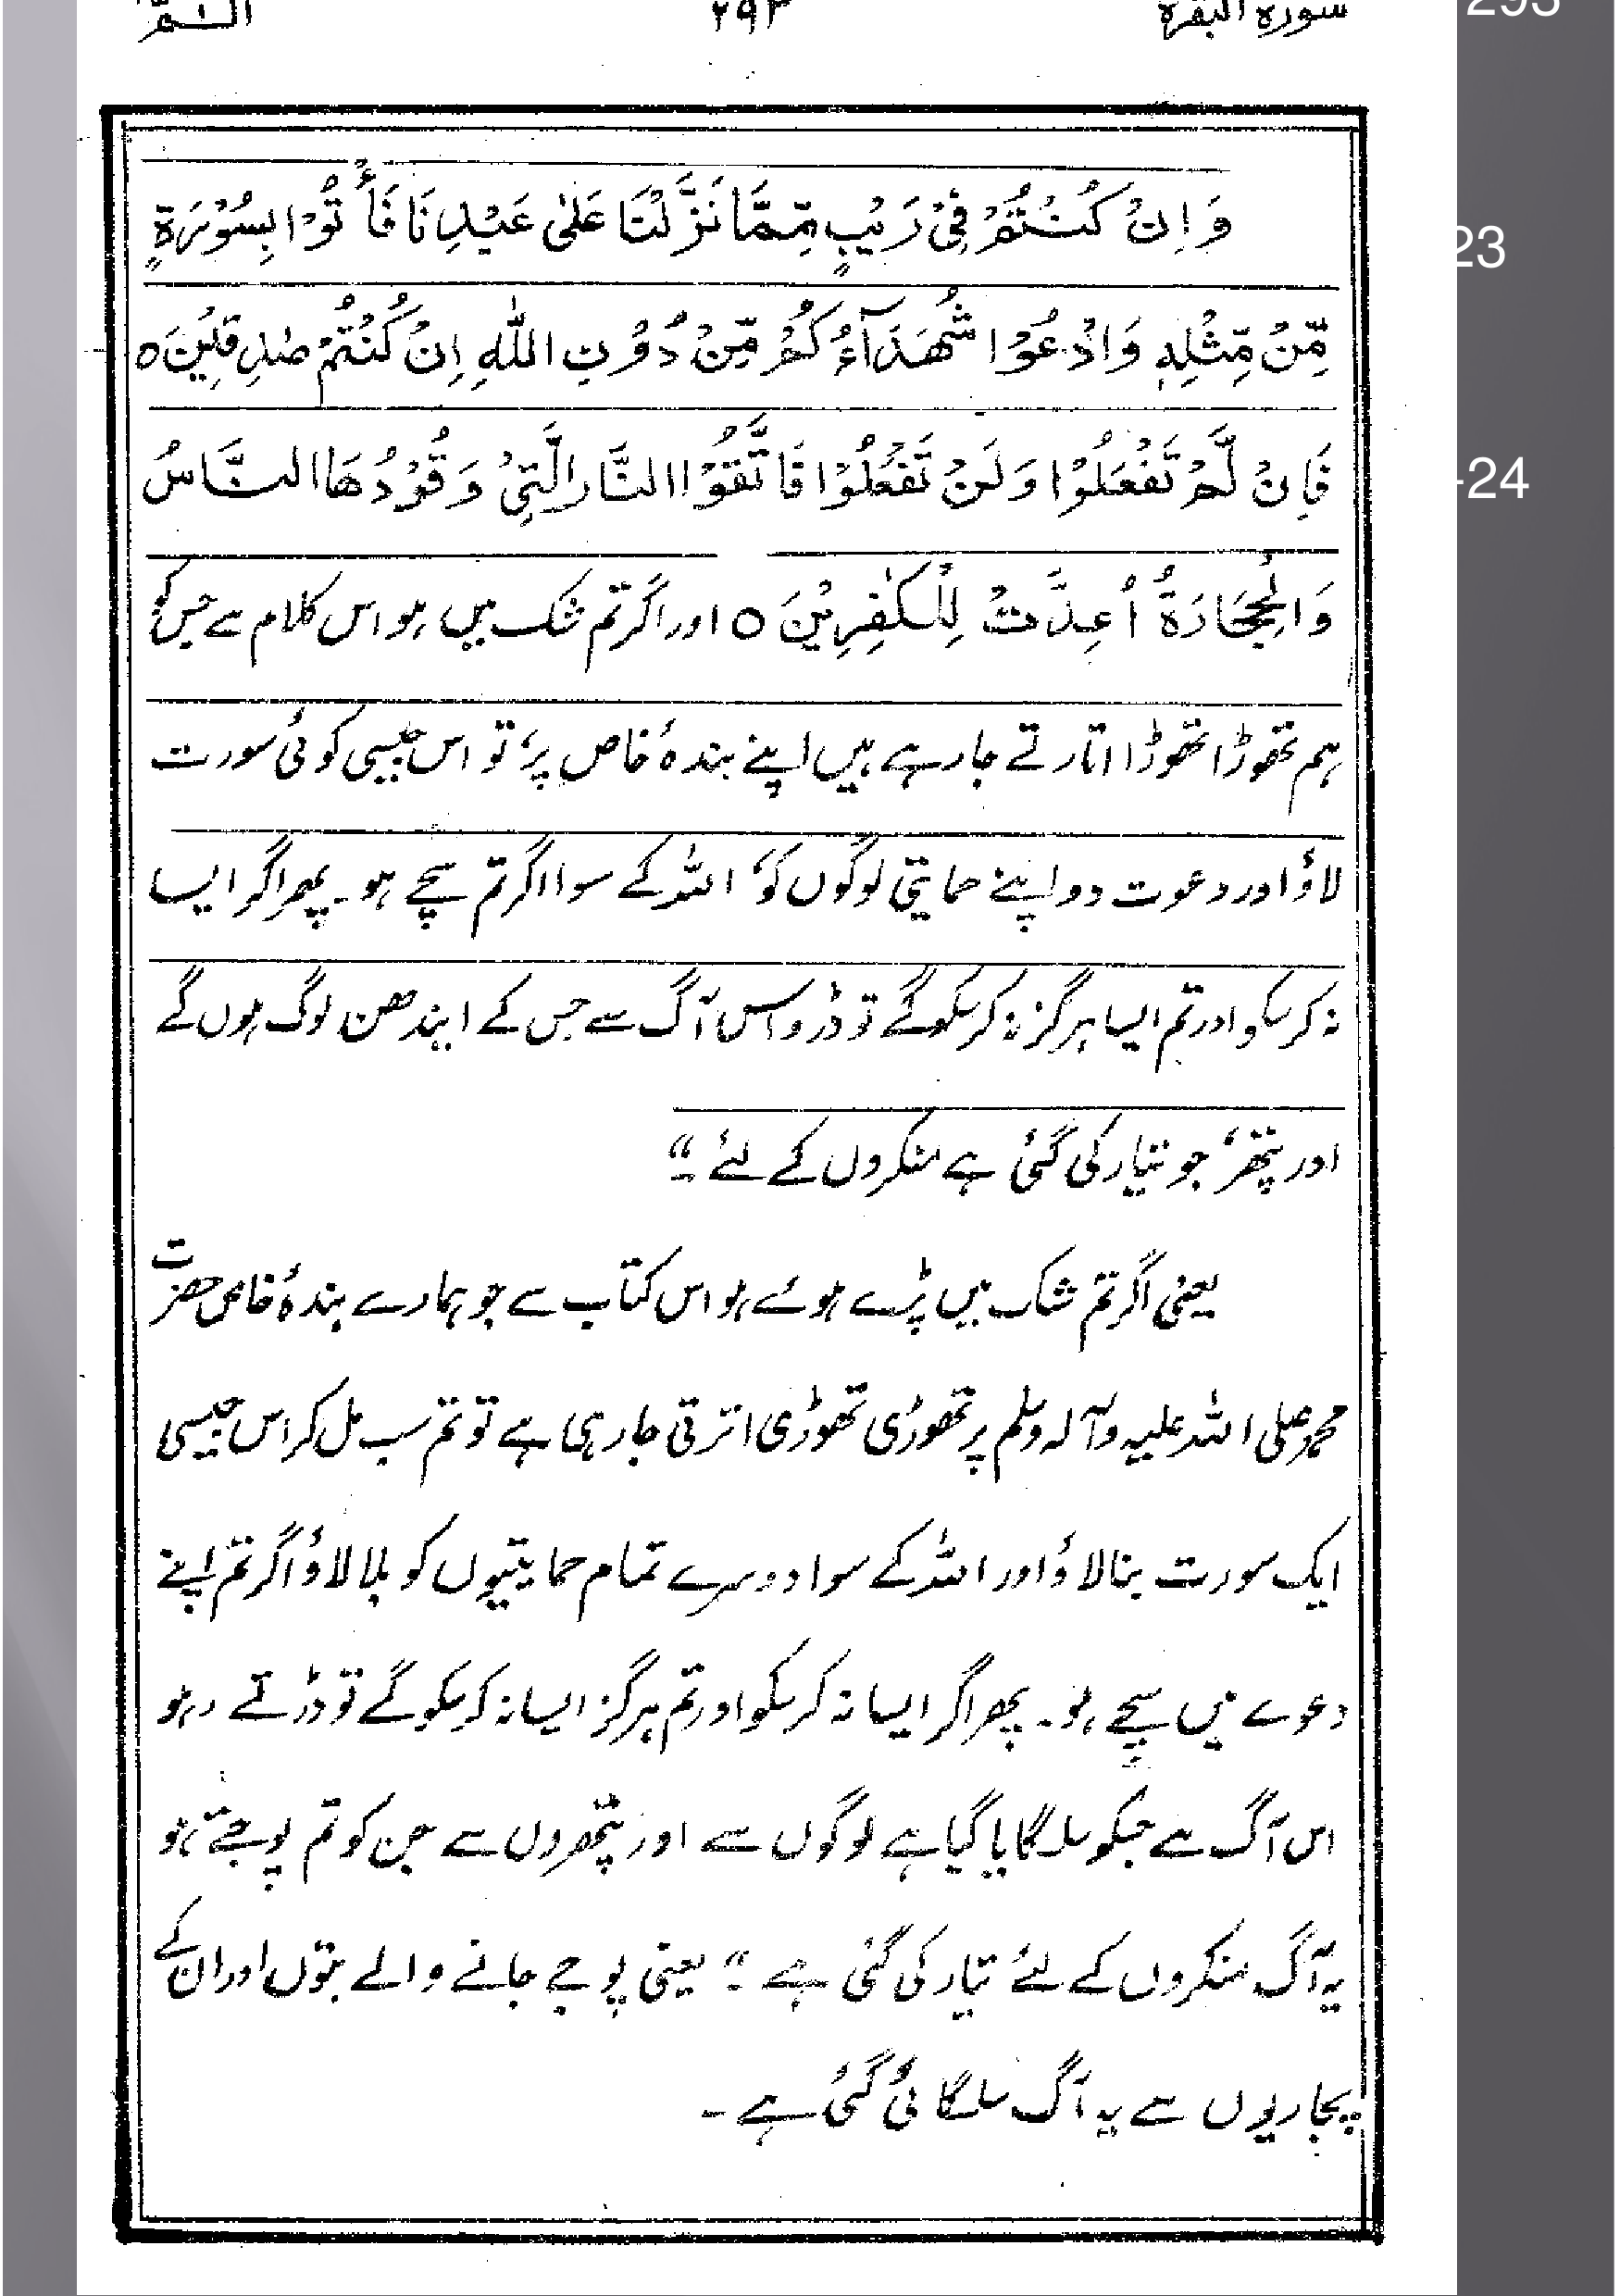 سورۃ البقرۃ ۲۹۳ الٓـمّٓ ۱
293
وَ اِنْ كُنْتُمْ فِیْ رَیْبٍ مِّمَّا نَزَّلْنَا عَلٰی عَبْدِنَا فَأْتُوْا بِسُوْرَةٍ
23
مِّنْ مِّثْلِهٖ وَادْعُوْا شُهَدَآءَكُمْ مِّنْ دُوْنِ اللّٰهِ اِنْ كُنْتُمْ صٰدِقِیْنَ ○
فَاِنْ لَّمْ تَفْعَلُوْا وَلَنْ تَفْعَلُوْا فَاتَّقُوْا النَّارَ الَّتِیْ وَقُوْدُهَا النَّاسُ
-24
وَالْحِجَارَةُ اُعِدَّتْ لِلْكٰفِرِیْنَ ○ اور اگر تم شک میں ہو اس کلام سے جس کو
ہم تھوڑا تھوڑا اتارتے جارہے ہیں اپنے بندۂ خاص پر، تو اس جیسی کوئی سورت
لاؤ اور دعوت دو اپنے حمایتی لوگوں کو، اللہ کے سوا اگر تم سچے ہو۔ پھر اگر ایسا
نہ کر سکو اور تم ایسا ہرگز نہ کر سکو گے تو ڈرو اس آگ سے جس کے ایندھن لوگ ہوں گے
اور پتھر، جو تیار کی گئی ہے منکروں کے لئے ۔“
یعنی اگر تم شک میں پڑے ہوئے ہو اس کتاب سے جو ہمارے بندۂ خاص حضرت
محمد صلی اللہ علیہ وآلہ وسلم پر تھوڑی تھوڑی اترتی جارہی ہے تو تم سب مل کر اس جیسی
ایک سورت بنا لاؤ اور اللہ کے سوا دوسرے تمام حمایتیوں کو بلا لاؤ اگر تم اپنے
دعوے میں سچے ہو۔ پھر اگر ایسا نہ کر سکو اور تم ہرگز ایسا نہ کر سکو گے تو ڈرتے رہو
اس آگ سے جسکو سلگایا گیا ہے لوگوں سے اور پتھروں سے جن کو تم پوجتے ہو
یہ آگ منکروں کے لئے تیار کی گئی ہے ۔“ یعنی پوجے جانے والے بتوں اور ان کے
پجاریوں سے یہ آگ سلگائی گئی ہے ۔